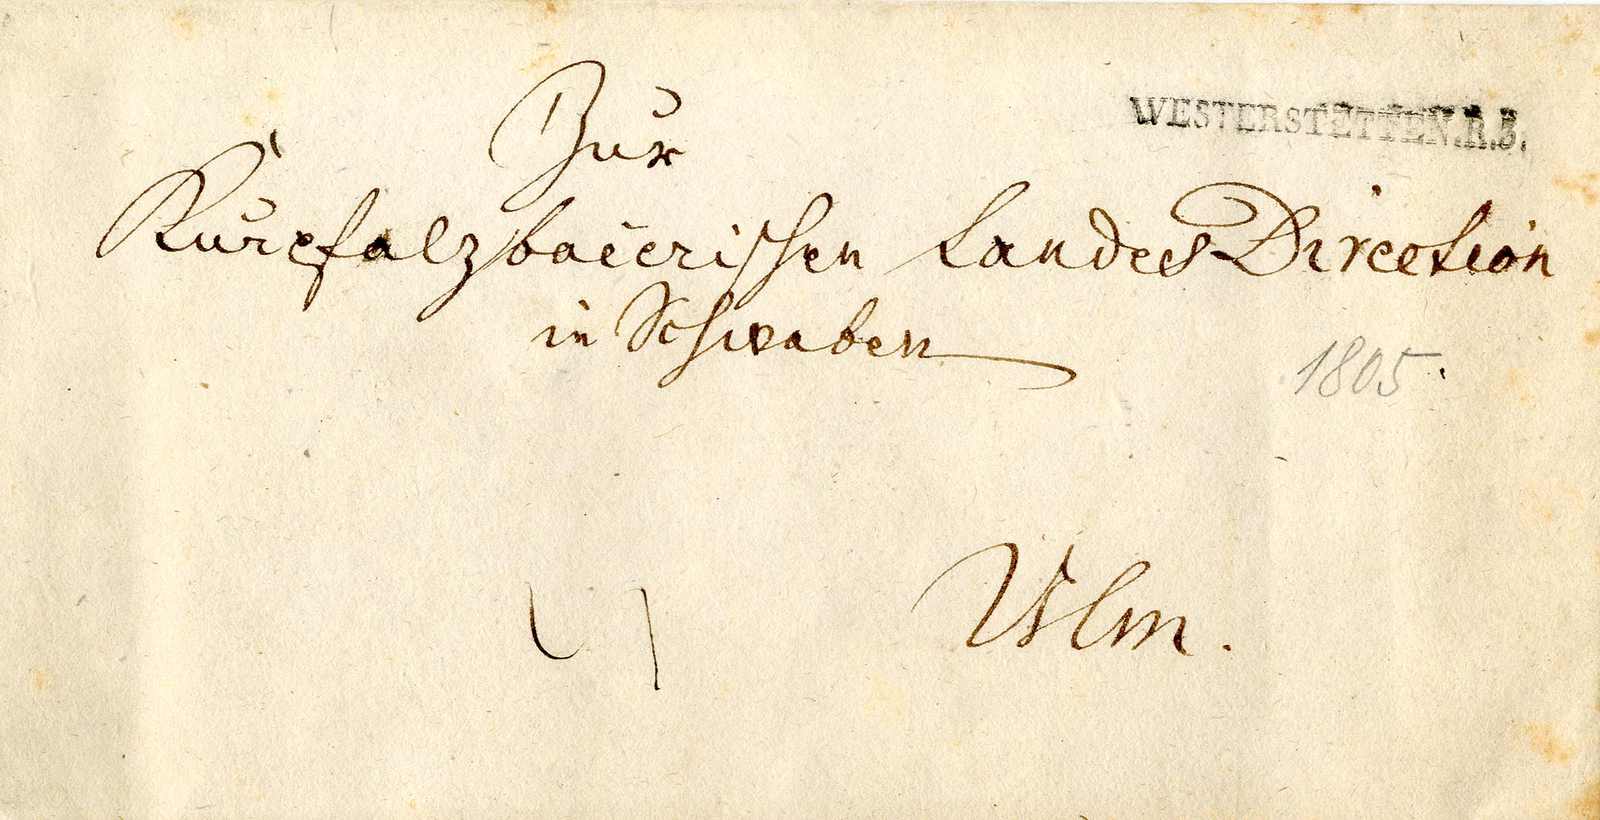 Zur
WESTERSTETTEN.R.3.
Kurpfalzbaierischen Landes Direction
in Schwaben
1805.
Ulm.